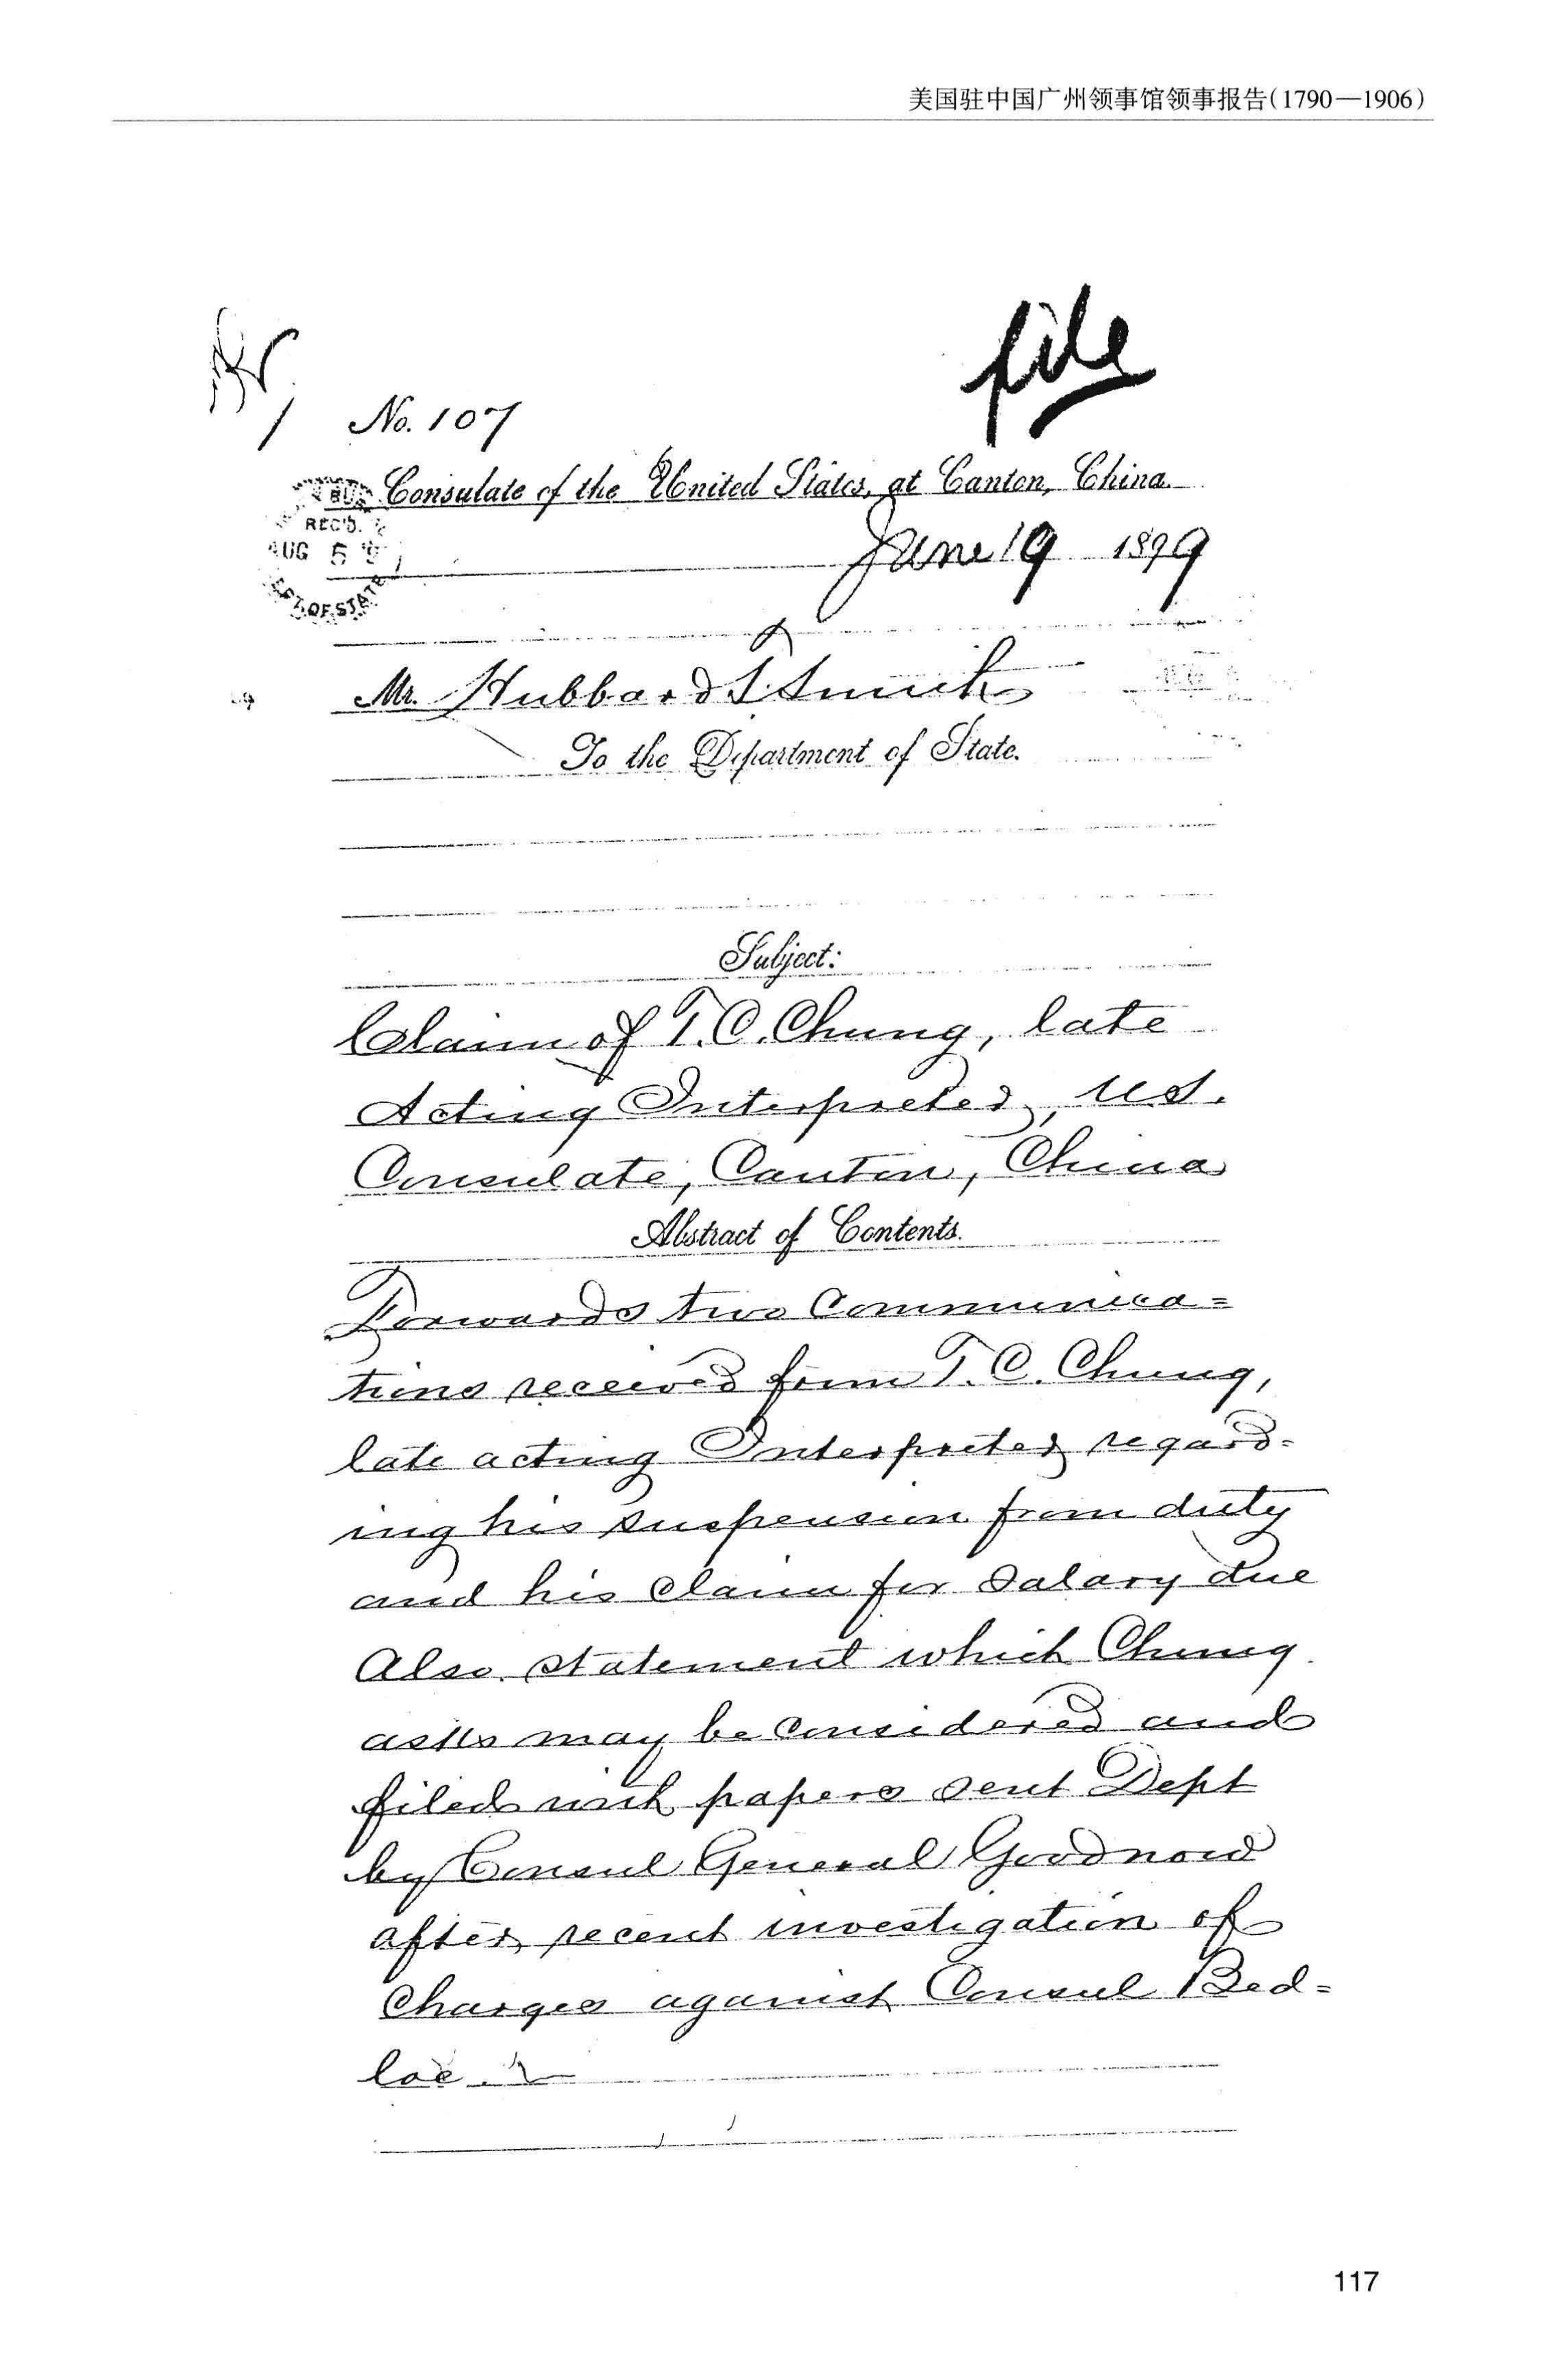 美国驻中国广州领事馆领事报告(1790—1906)
file
No. 107
Consulate of the United States, at Canton, China.
REC'D.
AUG 5
OF STATE
June 19 1899
Mr. Hubbard T. Smith
To the Department of State.
Subject:
Claim of T. C. Chung, late
Acting Interpreter, U.S.
Consulate, Canton, China
Abstract of Contents.
Forwards two Communica=
tions received from T. C. Chung,
late acting Interpreter regard-
ing his suspension from duty
and his claim for salary due
Also statement which Chung
asks may be considered and
filed with papers sent Dept
by Consul General Goodnow
after recent investigation of
Charges against Consul Bed=
loe.
117